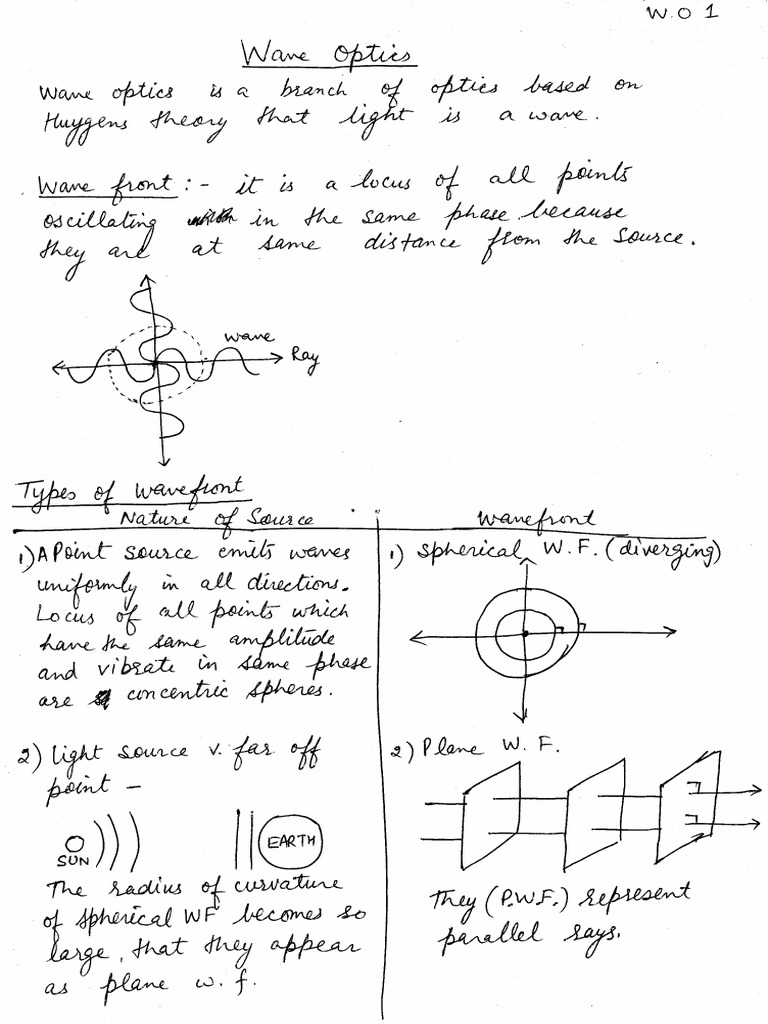 W.O 1
Wave Optics
Wave optics is a branch of optics based on
Huygens theory that light is a wave.
Wave front :- it is a locus of all points
oscillating in the same phase because
they are at same distance from the source.
wave
Ray
Types of wavefront
Nature of Source
wavefront
1) A Point source emits waves
uniformly in all directions.
Locus of all points which
have the same amplitude
and vibrate in same phase
are concentric spheres.
1) Spherical W.F. (diverging)
2) Light source v. far off
point -
SUN
EARTH
The radius of curvature
of spherical WF becomes so
large, that they appear
as plane w.f.
2) Plane W.F.
They (P.W.F.) represent
parallel rays.